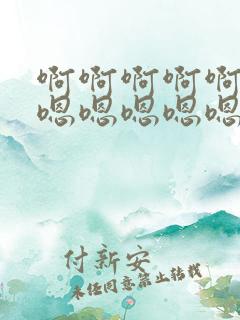 啊啊啊啊啊
嗯嗯嗯嗯嗯
付新安
未经同意禁止转载